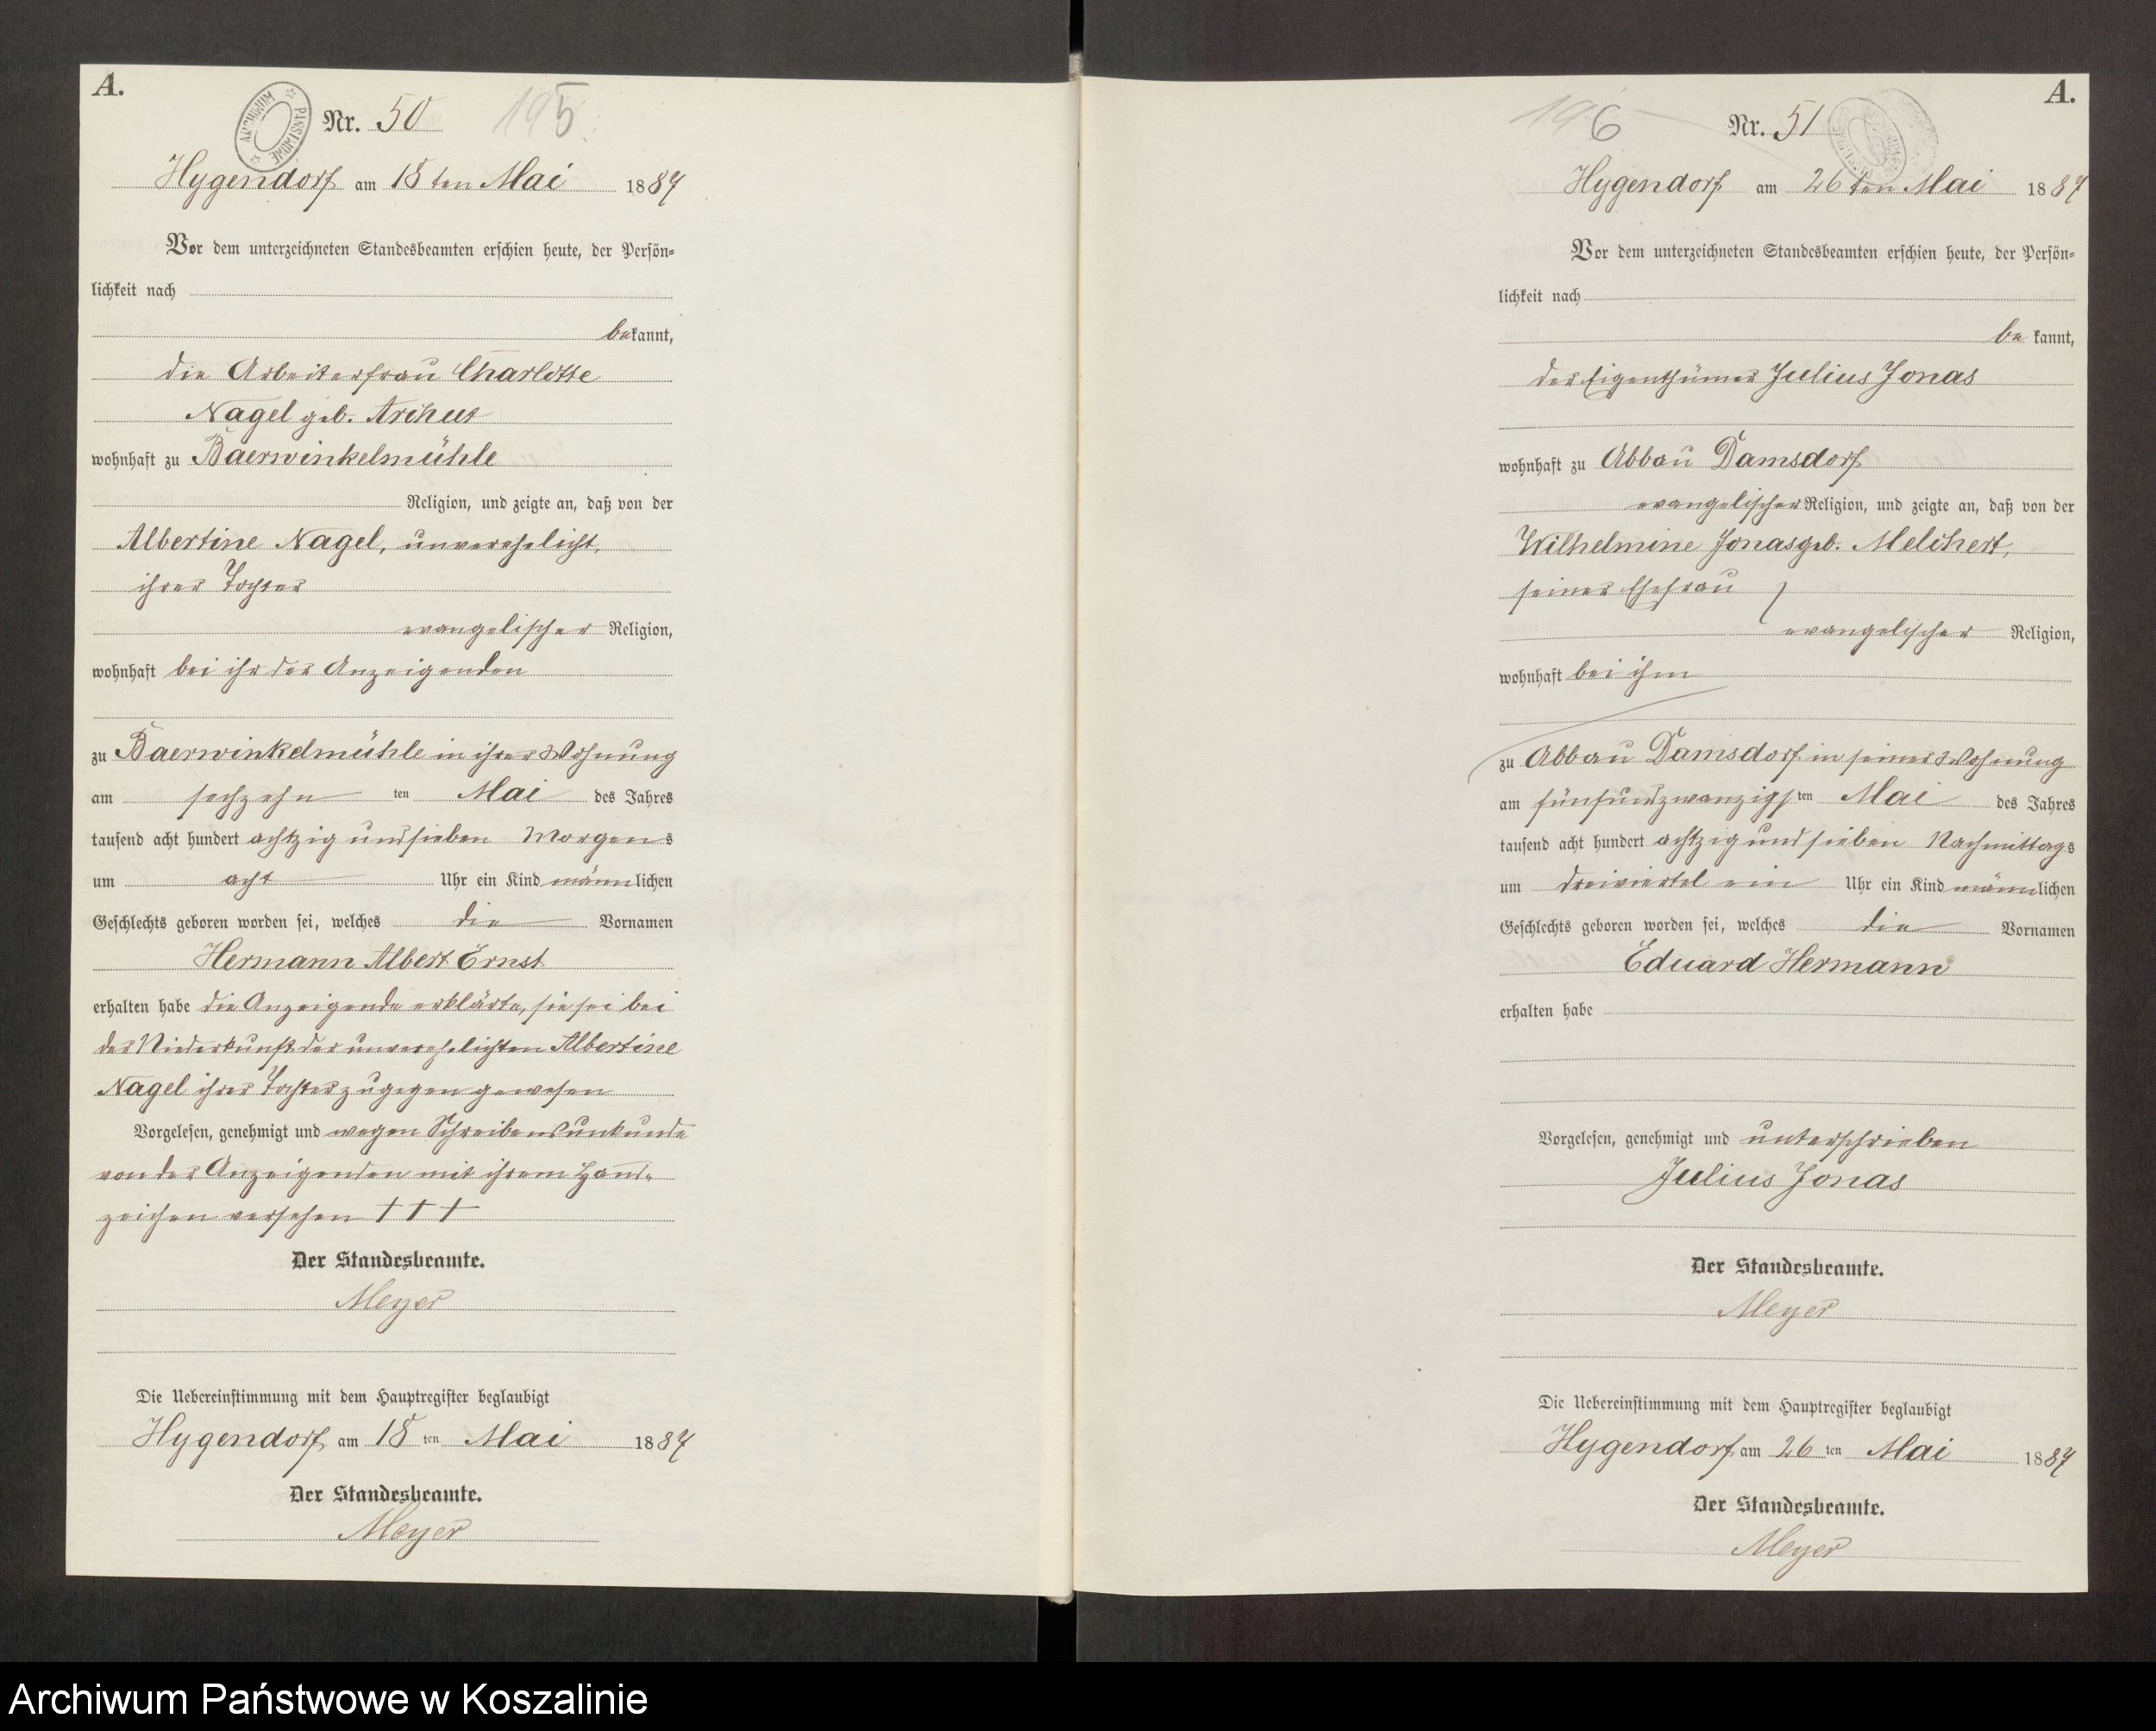 A.
Nr. 50 195
ARCHIWUM PAŃSTWOWE
Hygendorf am 18ten Mai 1887
Vor dem unterzeichneten Standesbeamten erschien heute, der Persön=
lichkeit nach
bekannt,
die Arbeiterfrau Charlotte
Nagel geb. Archut
wohnhaft zu Baerwinkelmühle
Religion, und zeigte an, daß von der
Albertine Nagel, unverehelicht,
ihrer Tochter
evangelischer Religion,
wohnhaft bei ihr der Anzeigenden
zu Baerwinkelmühle in ihrer Wohnung
am sechzehn ten Mai des Jahres
tausend acht hundert achtzig und sieben Morgens
um acht Uhr ein Kind männlichen
Geschlechts geboren worden sei, welches die Vornamen
Hermann Albert Ernst
erhalten habe die Anzeigende erklärte, sie sei bei
der Niederkunft der unverehelichten Albertine
Nagel ihrer Tochter zugegen gewesen
Vorgelesen, genehmigt und wegen Schreibensunkunde
von der Anzeigenden mit ihrem Hand-
zeichen versehen † † †
Der Standesbeamte.
Meyer
Die Uebereinstimmung mit dem Hauptregister beglaubigt
Hygendorf am 18 ten Mai 1887
Der Standesbeamte.
Meyer
A.
196 Nr. 51
Hygendorf am 26ten Mai 1887
Vor dem unterzeichneten Standesbeamten erschien heute, der Persön=
lichkeit nach
be kannt,
der Eigenthümer Julius Jonas
wohnhaft zu Abbau Damsdorf
evangelischer Religion, und zeigte an, daß von der
Wilhelmine Jonas geb. Melchert,
seiner Ehefrau
evangelischer Religion,
wohnhaft bei ihm
zu Abbau Damsdorf in seiner Wohnung
am fünfundzwanzigs ten Mai des Jahres
tausend acht hundert achtzig und sieben Nachmittags
um dreiviertel ein Uhr ein Kind männlichen
Geschlechts geboren worden sei, welches die Vornamen
Eduard Hermann
erhalten habe
Vorgelesen, genehmigt und unterschrieben
Julius Jonas
Der Standesbeamte.
Meyer
Die Uebereinstimmung mit dem Hauptregister beglaubigt
Hygendorf am 26 ten Mai 1887
Der Standesbeamte.
Meyer
Archiwum Państwowe w Koszalinie